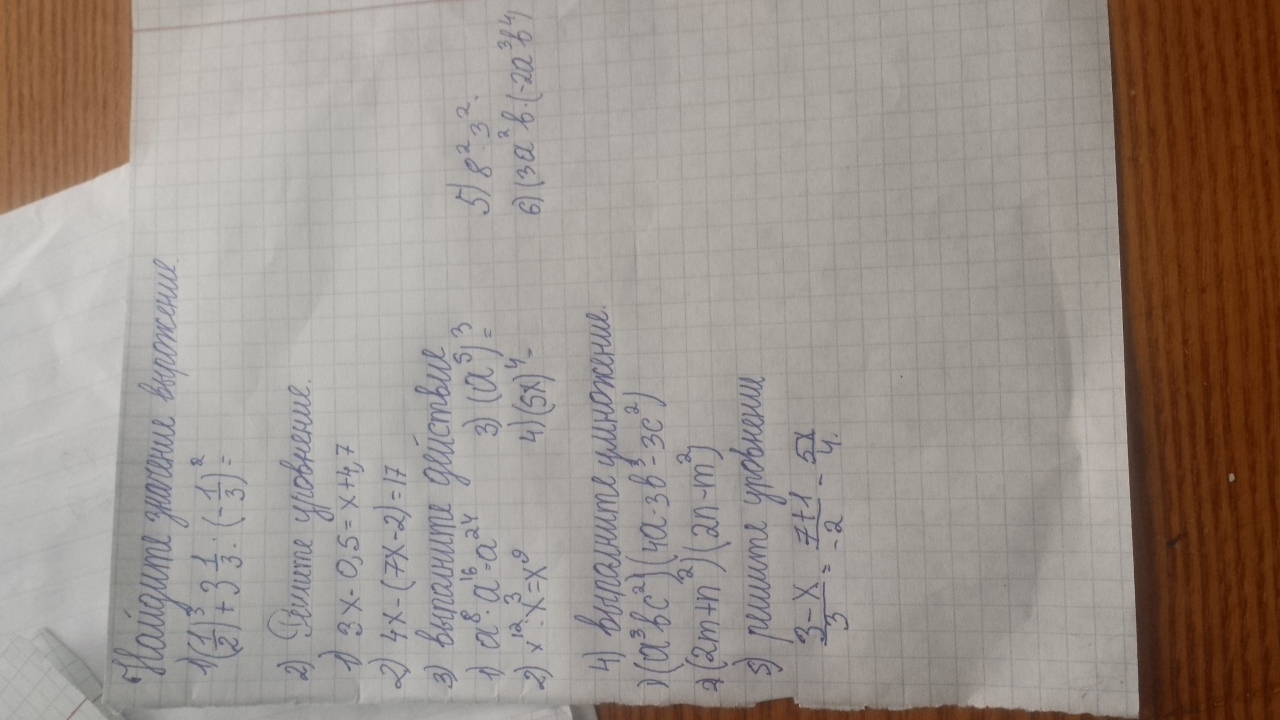 Найдите значение выражение.
1) (1/2)³ + 3 1/3 · (-1/3)² =
2) Решите уровнение.
1) 3x - 0,5 = x + 4,7
2) 4x - (7x - 2) = 17
3) выполните действие
1) a⁸ · a¹⁶ = a²⁴ 3) (a⁵)³ = 5) 8² · 3² .
2) x¹² · x³ = x⁹ 4) (5x)⁴ - 6) (3a²b · (-2a³b⁴)
4) выполните умножение.
1) (a³bc²) (4a - 3b³ - 3c²)
2) (2m + n²) (2n - m²)
5) решите уровнении
3 - x / 3 = 7 + 1 / -2 - 5x / 4.